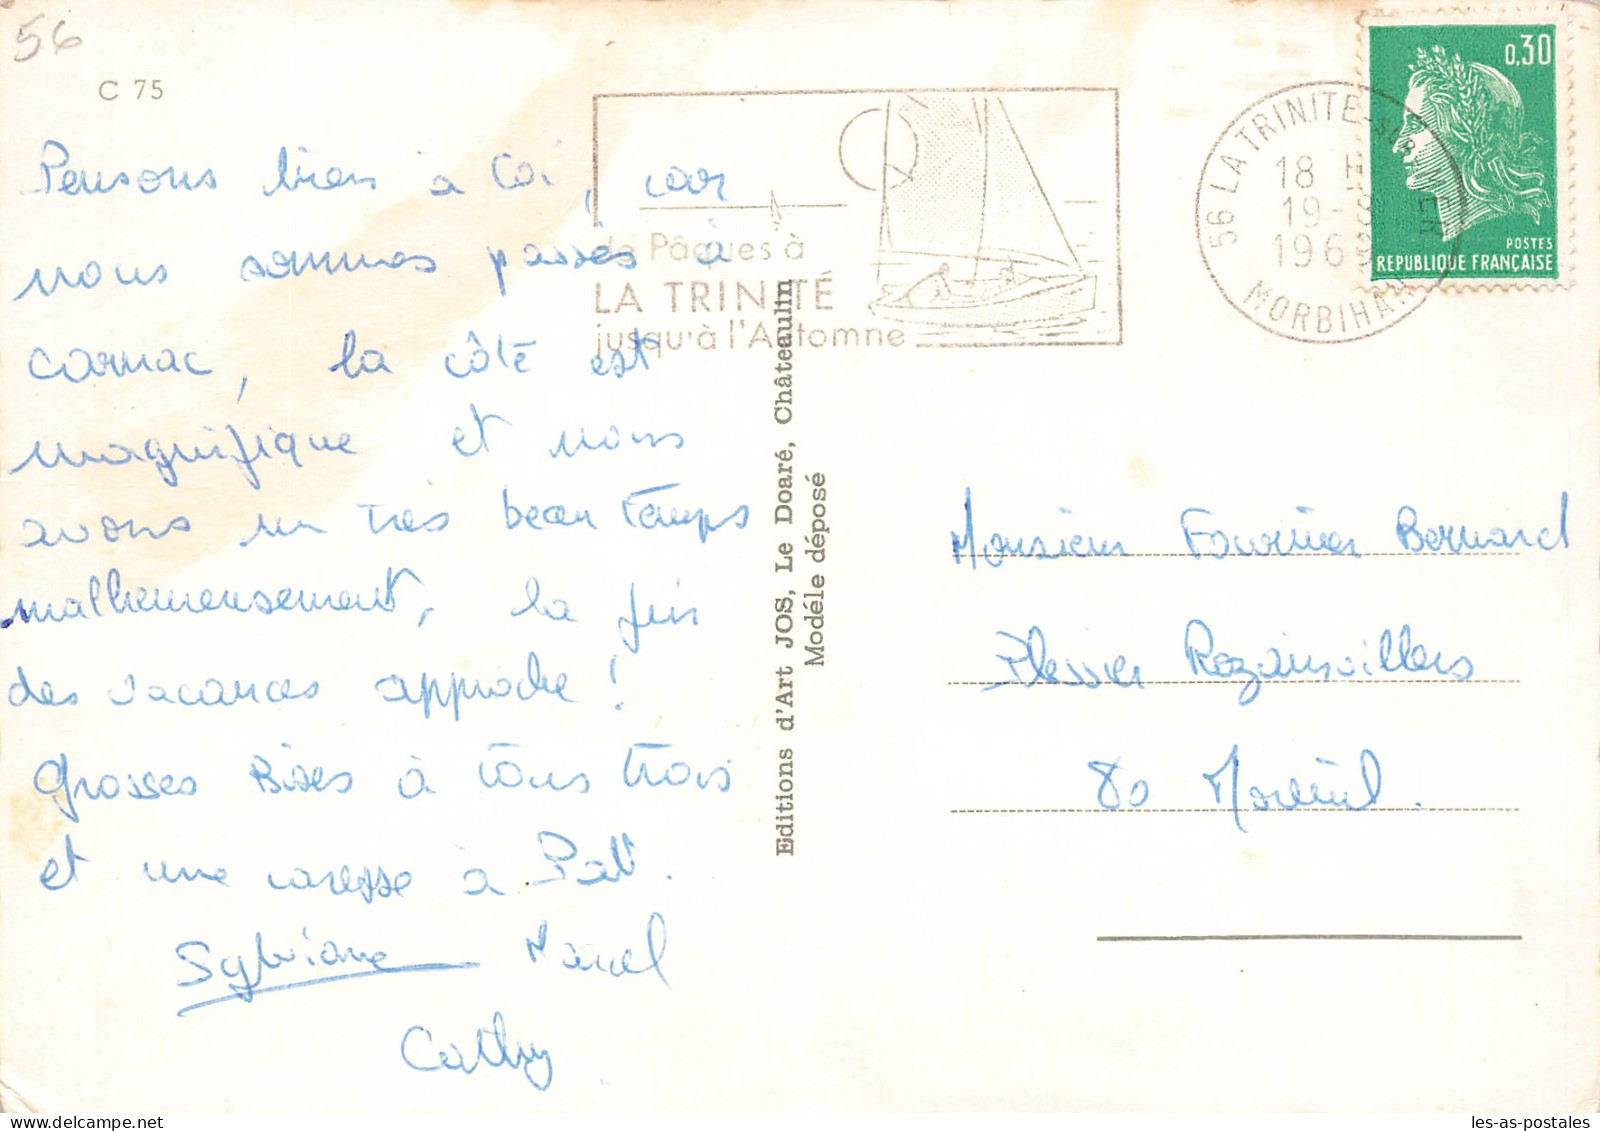 56
C 75
Pensons bien à toi, car
nous sommes passés à
Carnac, la côte est
magnifique et nous
avons un très beau temps
malheureusement, la fin
des vacances approche !
Grosses Bises à tous trois
et une caresse à
Sylviane Marcel
Cathy
de Pâques à
LA TRINITÉ
jusqu'à l'Automne
56 LA TRINITE-SUR-MER
18 H
19-8
1969
MORBIHAN
0,30
POSTES
REPUBLIQUE FRANÇAISE
Editions d'Art JOS, Le Doaré, Châteaulin
Modéle déposé
Monsieur Fournier Bernard
Plessier Rozainvillers
80 Moreuil.
les-as-postales